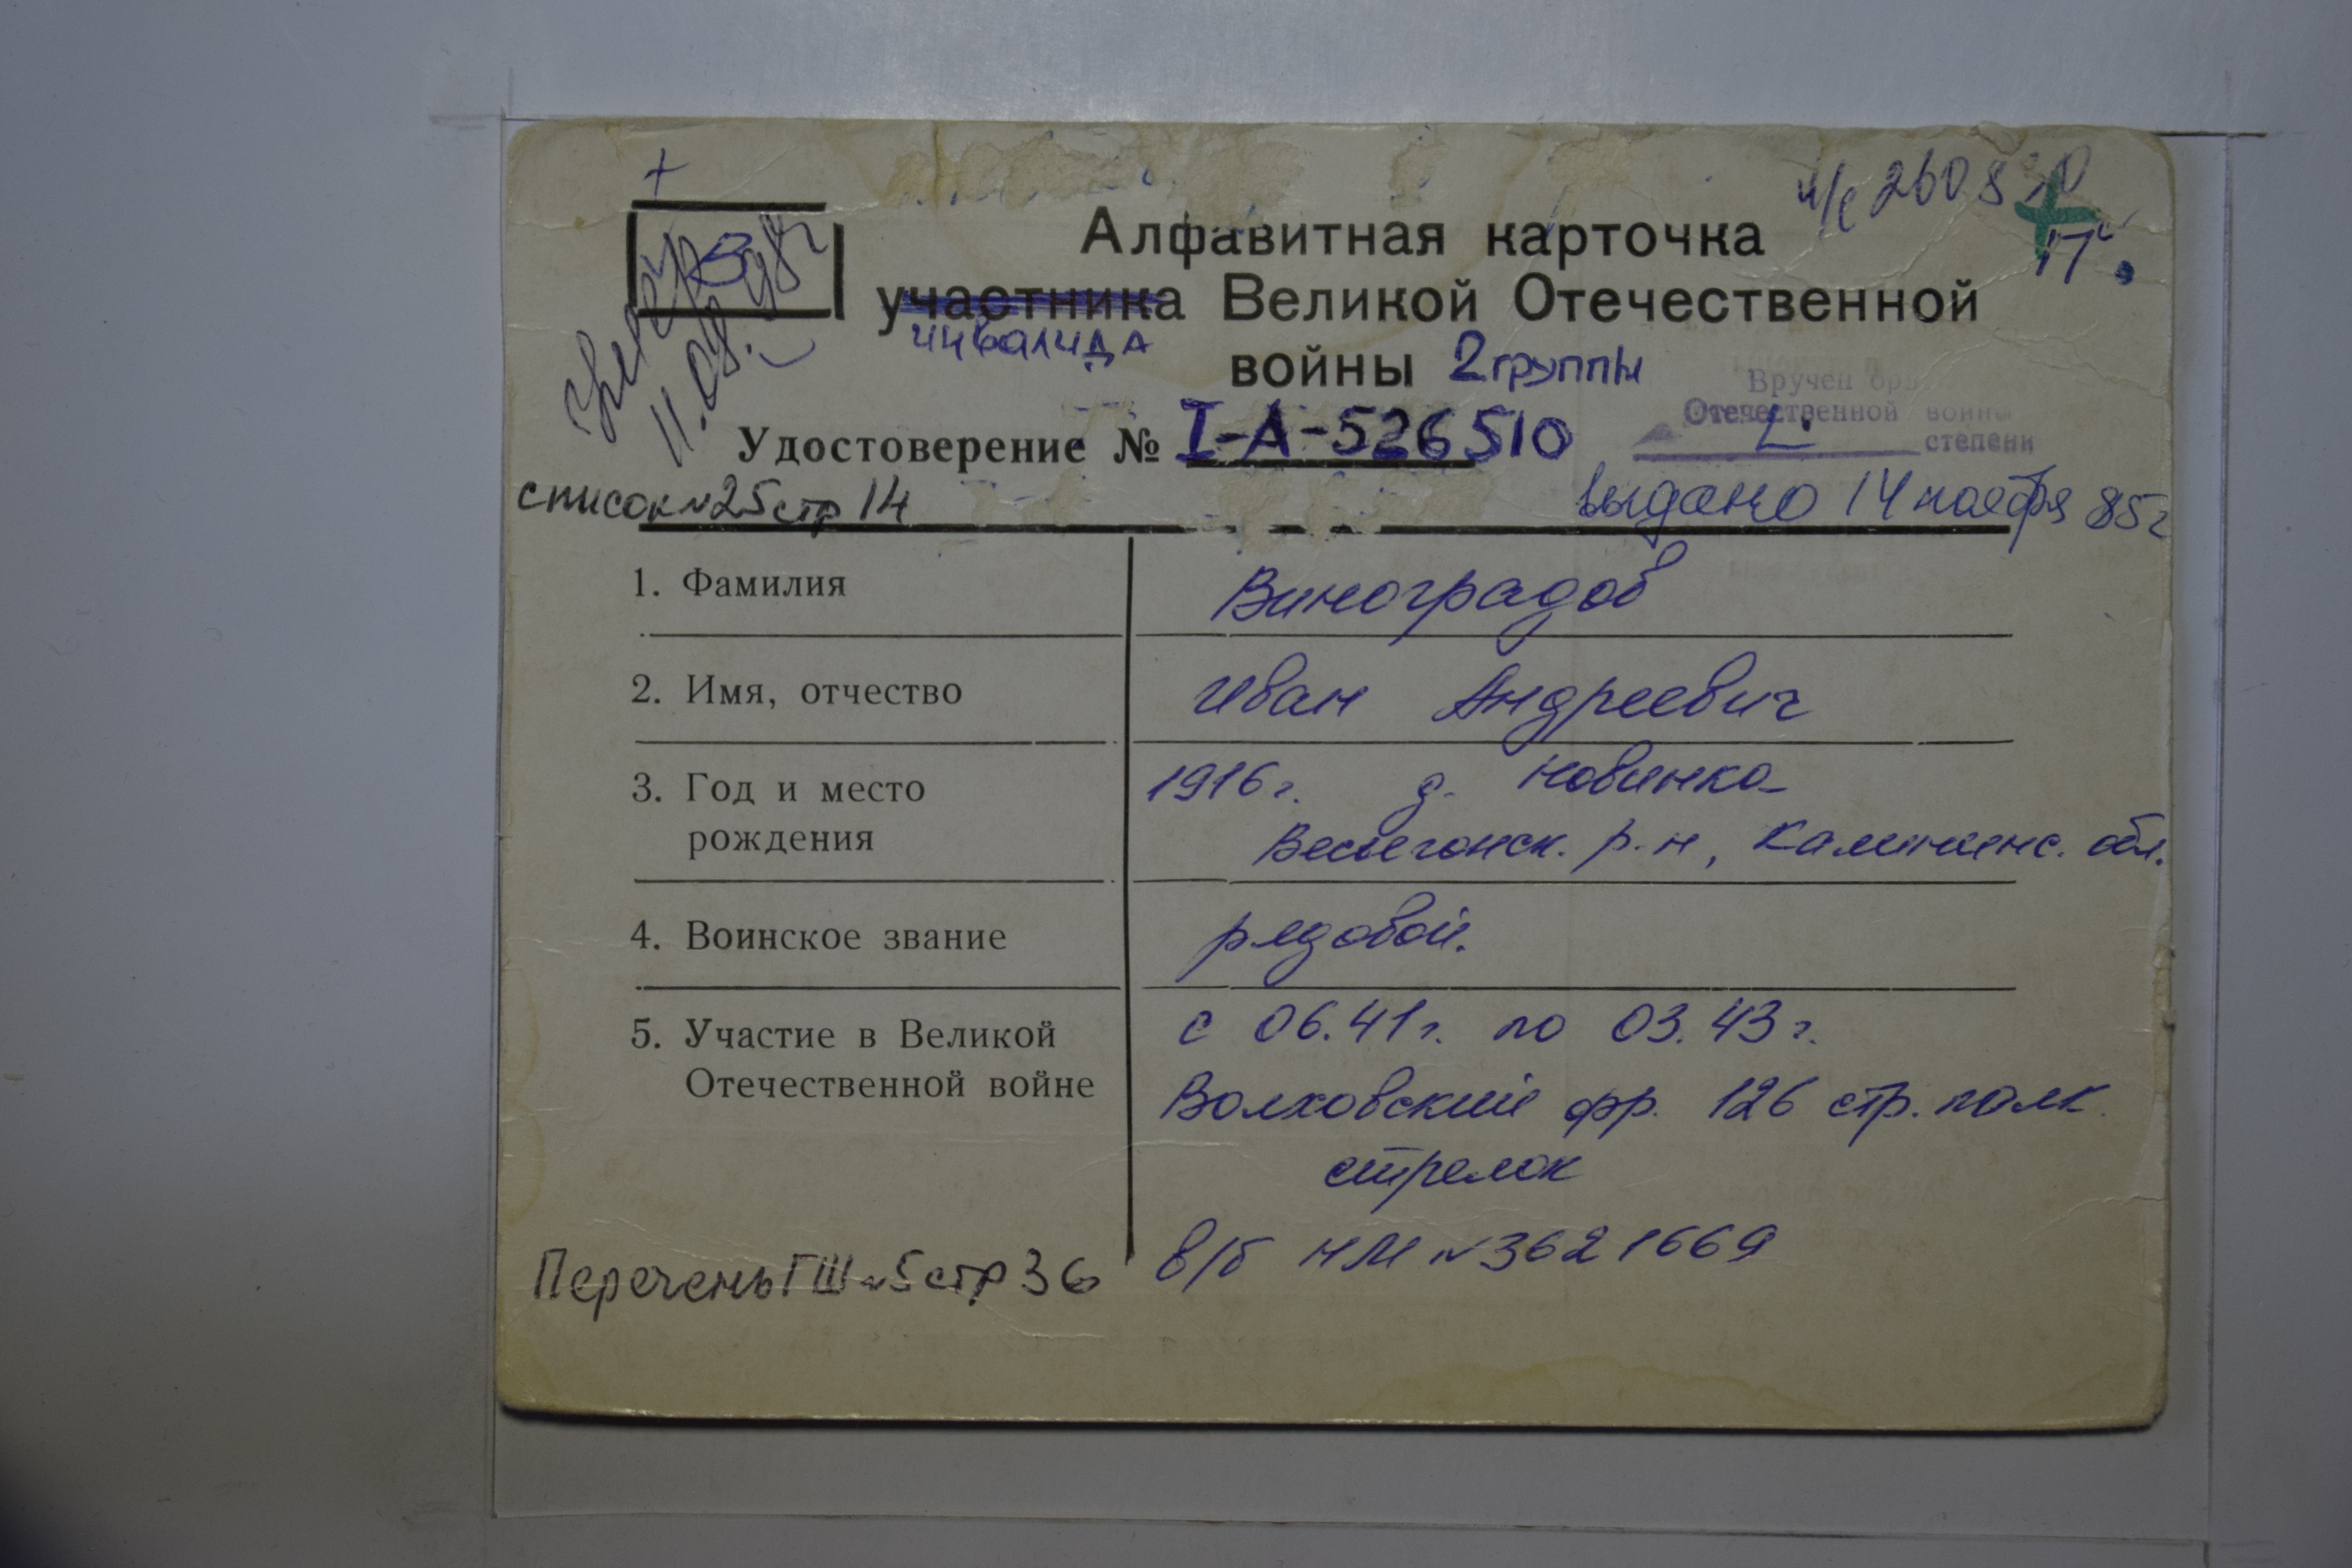 +
В
умер
11.08.98г
и/с 260830
Алфавитная карточка
участника Великой Отечественной
инвалида
войны 2 группы
Вручен орд
Отечественной войны
I степени
Удостоверение № I-А-526510
список №25 стр 14
выдано 14 ноября 85г
1. Фамилия
Виноградов
2. Имя, отчество
Иван Андреевич
3. Год и место
рождения
1916г. д. Новинка
Весьегонск. р-н, Калининс. обл.
4. Воинское звание
рядовой.
5. Участие в Великой
Отечественной войне
с 06.41г. по 03.43г.
Волховский фр. 126 стр. полк
стрелок
в/б НМ №3621669
Перечень ГШ №5 стр 36